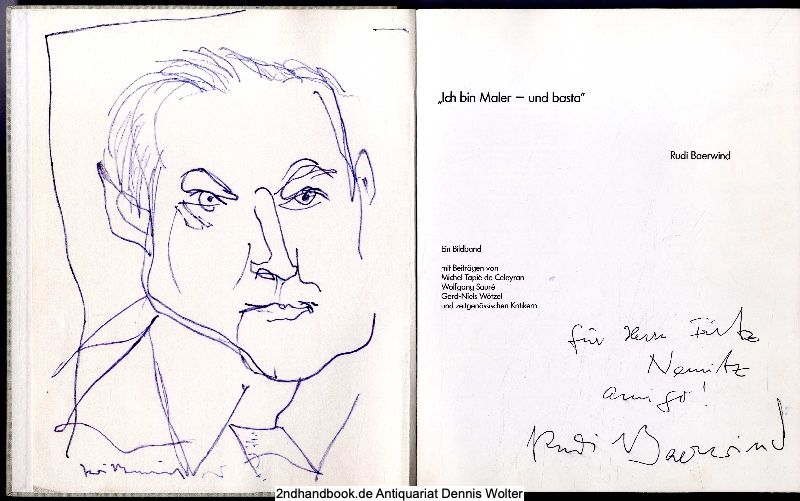 „Ich bin Maler – und basta"
Rudi Baerwind
Ein Bildband
mit Beiträgen von
Michel Tapié de Celeyran
Wolfgang Sauré
Gerd-Niels Wötzel
und zeitgenössischen Kritikern
für Herrn
Nemitz
amigo!
Rudi Baerwind
2ndhandbook.de Antiquariat Dennis Wolter